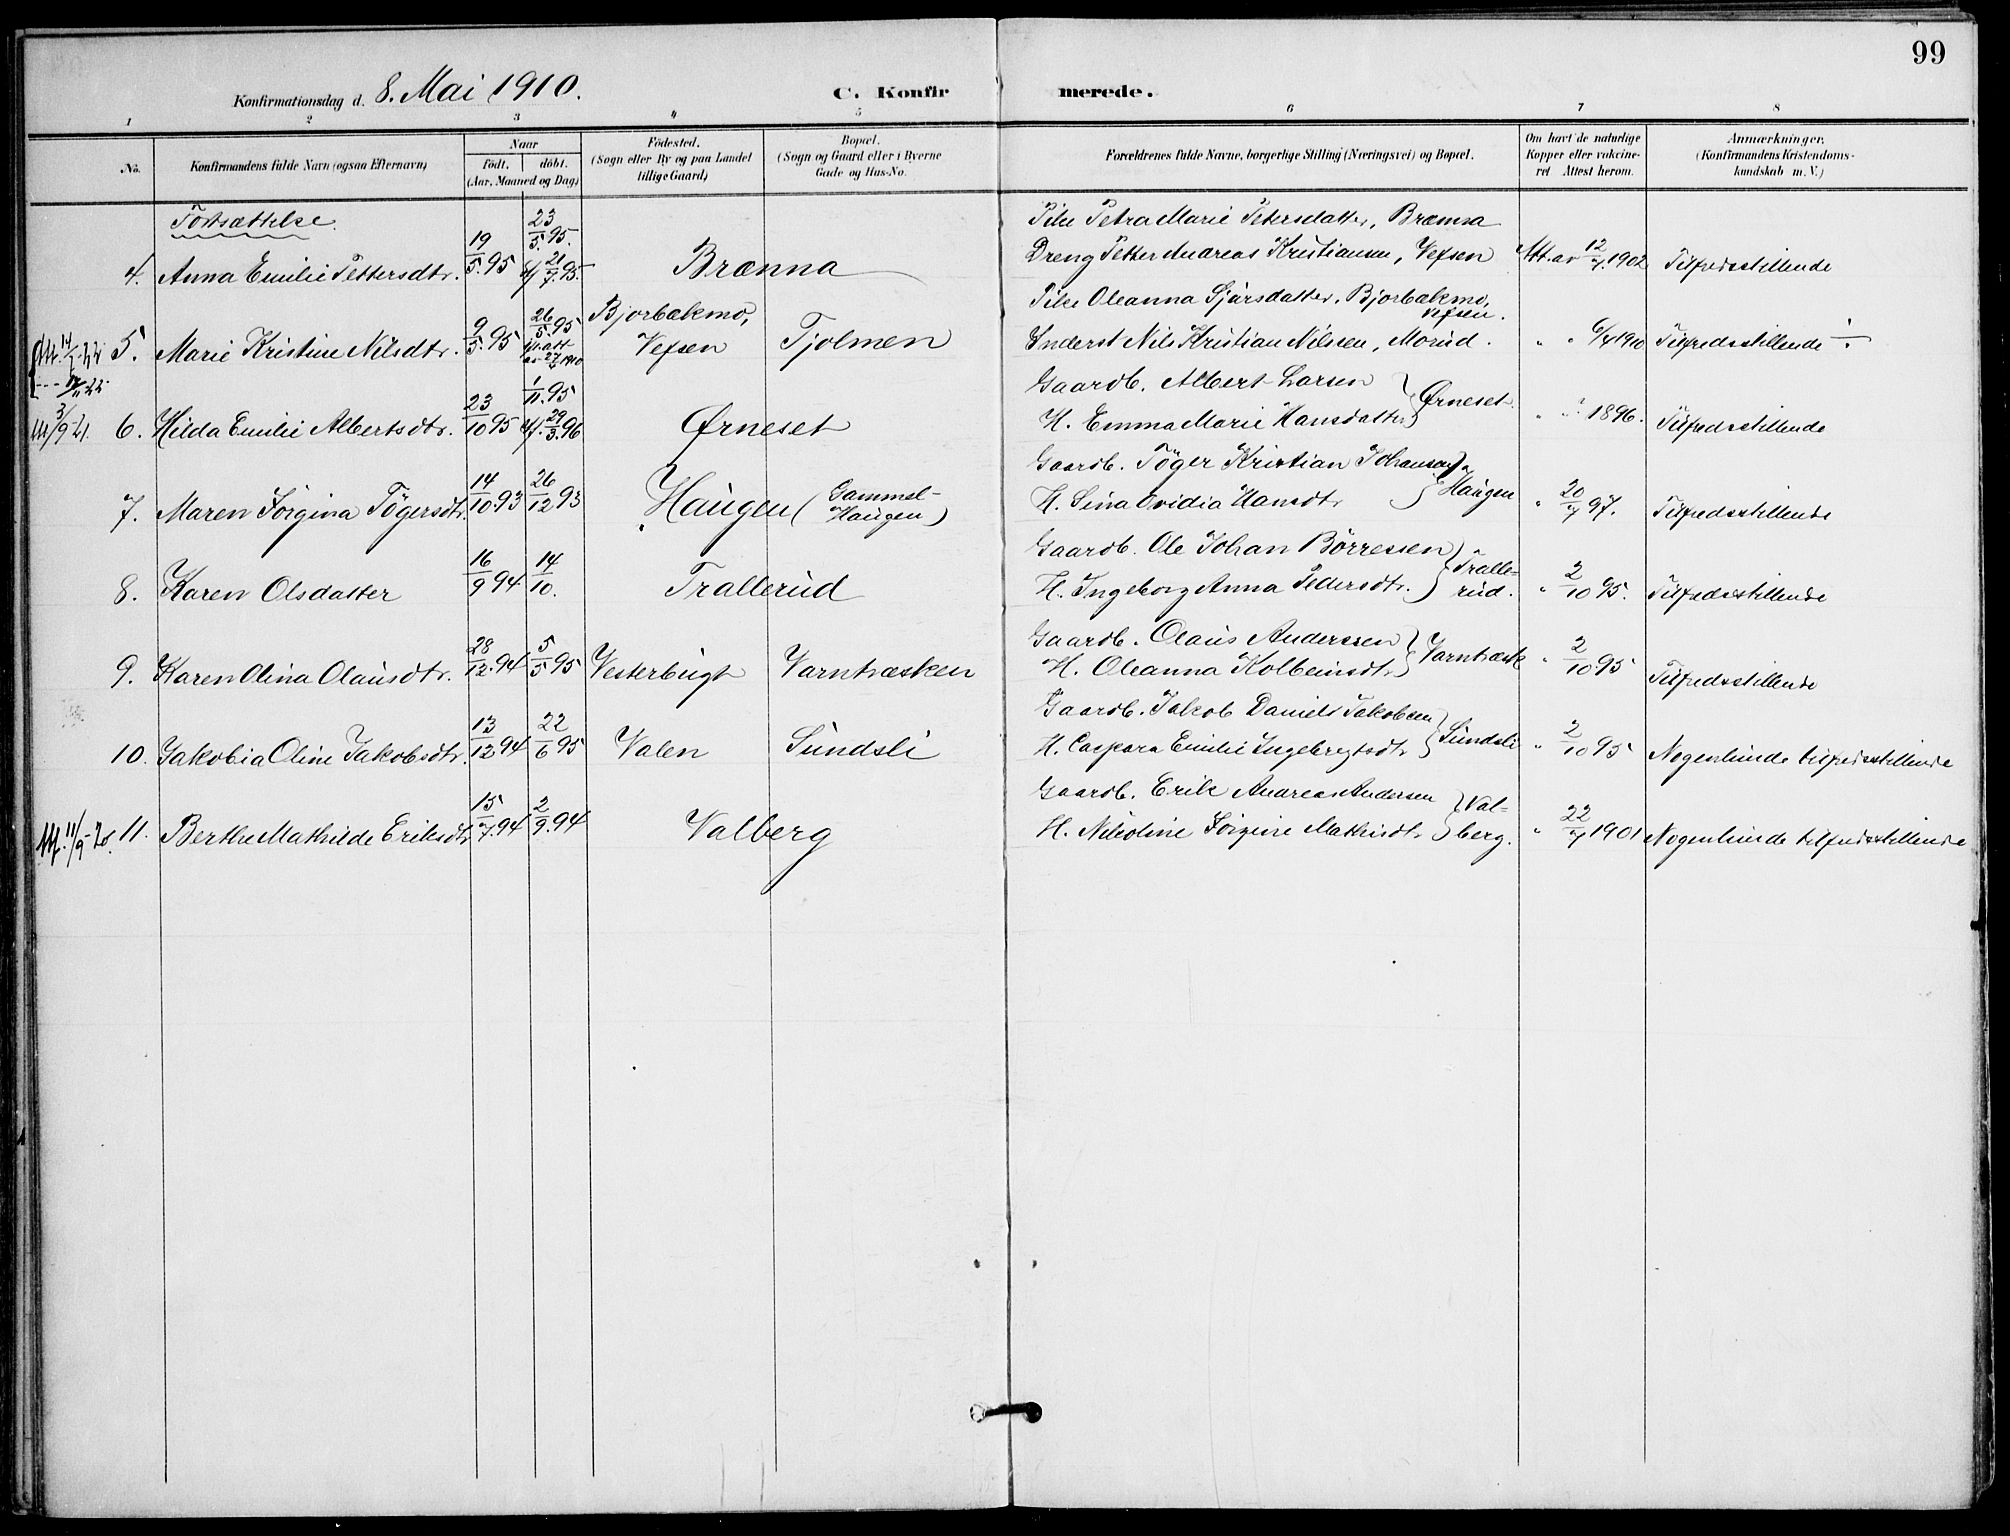 99
Konfirmationsdag d. 8. Mai 1910. C. Konfirmerede.
1 2 3 4 5 6 7 8
No.
Konfirmandens fulde Navn (ogsaa Efternavn)
Naar
födt. döbt.
(Aar, Maaned og Dag)
Födested.
(Sogn eller By og paa Landet
tillige Gaard)
Bopæl.
(Sogn og Gaard eller i Byerne
Gade og Hus-No.
Forældrenes fulde Navne, borgerlige Stilling (Næringsvei) og Bopæl.
Om havt de naturlige
Kopper eller vakcine-
ret Attest herom.
Anmærkninger.
(Konfirmandens Kristendoms-
kundskab m. V.)
Fortsættelse.
4. Anna Emilie Pettersdtr. 19/5.95 23/5.95. 21/7.95. Brænna
Pike Petra Marie Petersdatter, Brænna
Dreng Petter Andreas Kristiansen, Vefsen Att. av 12/7.1902 Tilfredsstillende
5. Marie Kristine Nilsdtr. 9/5.95 26/5.95 Bjorbækmo, Vefsen Tjolmen
Pike Oleanna Sjursdatter, Bjorbækmo, Vefsen.
Inderst Nils Kristian Nilsen, Morud. " " 6/4 1910 Tilfredsstillende
6. Hilda Emilie Albertsdtr. 23/10 95 1/11.95 29/3.96 Ørneset
Gaardb. Albert Larsen
H. Emma Marie Hansdatter } Ørneset. " " 1896. Tilfredsstillende
7. Maren Jörgina Tögersdtr. 14/10.93 26/12 93 Haugen (Gammel-Haugen)
Gaardb. Töger Kristian Johansen
H. Sina Ovidia Hansdtr } Haugen " 20/7 97. Tilfredsstillende
8. Karen Olsdatter 16/9 94 14/10. Trallerud
Gaardb. Ole Johan Börressen
H. Ingeborg Anna Pedersdtr. } Trallerud. " 2/10 95. Tilfredsstillende
9. Karen Olina Olausdtr. 28/12.94 5/5 95 Vesterbugt Varntræsken
Gaardb. Olaus Anderssen
H. Oleanna Kolbeinsdtr } Varntræsk " 2/10 95 Tilfredsstillende
10. Jakobia Oline Jakobsdtr. 13/12.94 22/6 95 Valen Sundsli
Gaardb. Jakob Daniels Jakobsen
H. Caspara Emilie Ingebregtsdtr } Sundsli " 2/10 95 Nogenlunde tilfredsstillende
11. Berthe Mathilde Eriksdtr 15/7.94 2/9.94 Valberg
Gaardb. Erik Andreas Andersen
H. Nikoline Jörgine Mathisdtr } Valberg. " 22/7 1901 Nogenlunde tilfredsstillende